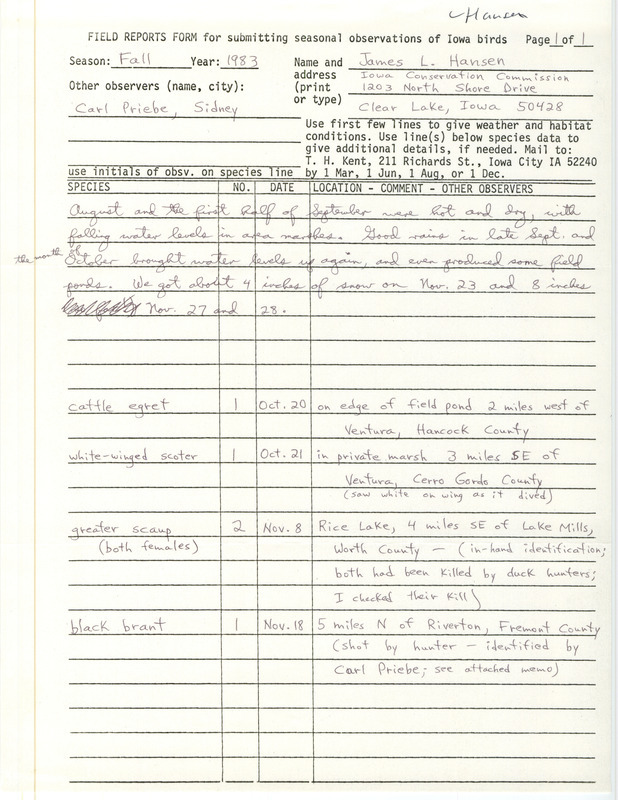 Hansen
FIELD REPORTS FORM for submitting seasonal observations of Iowa birds Page 1 of 1
Season: Fall Year: 1983 Name and James L. Hansen
address Iowa Conservation Commission
Other observers (name, city): (print 1203 North Shore Drive
or type)
Carl Priebe, Sidney Clear Lake, Iowa 50428
Use first few lines to give weather and habitat
conditions. Use line(s) below species data to
give additional details, if needed. Mail to:
T. H. Kent, 211 Richards St., Iowa City IA 52240
use initials of obsv. on species line by 1 Mar, 1 Jun, 1 Aug, or 1 Dec.
SPECIES NO. DATE LOCATION - COMMENT - OTHER OBSERVERS
August and the first half of September were hot and dry, with
falling water levels in area marshes. Good rains in late Sept. and
the month of October brought water levels up again, and even produced some field
ponds. We got about 4 inches of snow on Nov. 23 and 8 inches
Nov. 27 and 28.
cattle egret 1 Oct. 20 on edge of field pond 2 miles west of
Ventura, Hancock County
white-winged scoter 1 Oct. 21 in private marsh 3 miles SE of
Ventura, Cerro Gordo County
(saw white on wing as it dived)
greater scaup 2 Nov. 8 Rice Lake, 4 miles SE of Lake Mills,
(both females) Worth County — (in-hand identification;
both had been killed by duck hunters;
I checked their kill)
black brant 1 Nov. 18 5 miles N of Riverton, Fremont County
(shot by hunter — identified by
Carl Priebe; see attached memo)